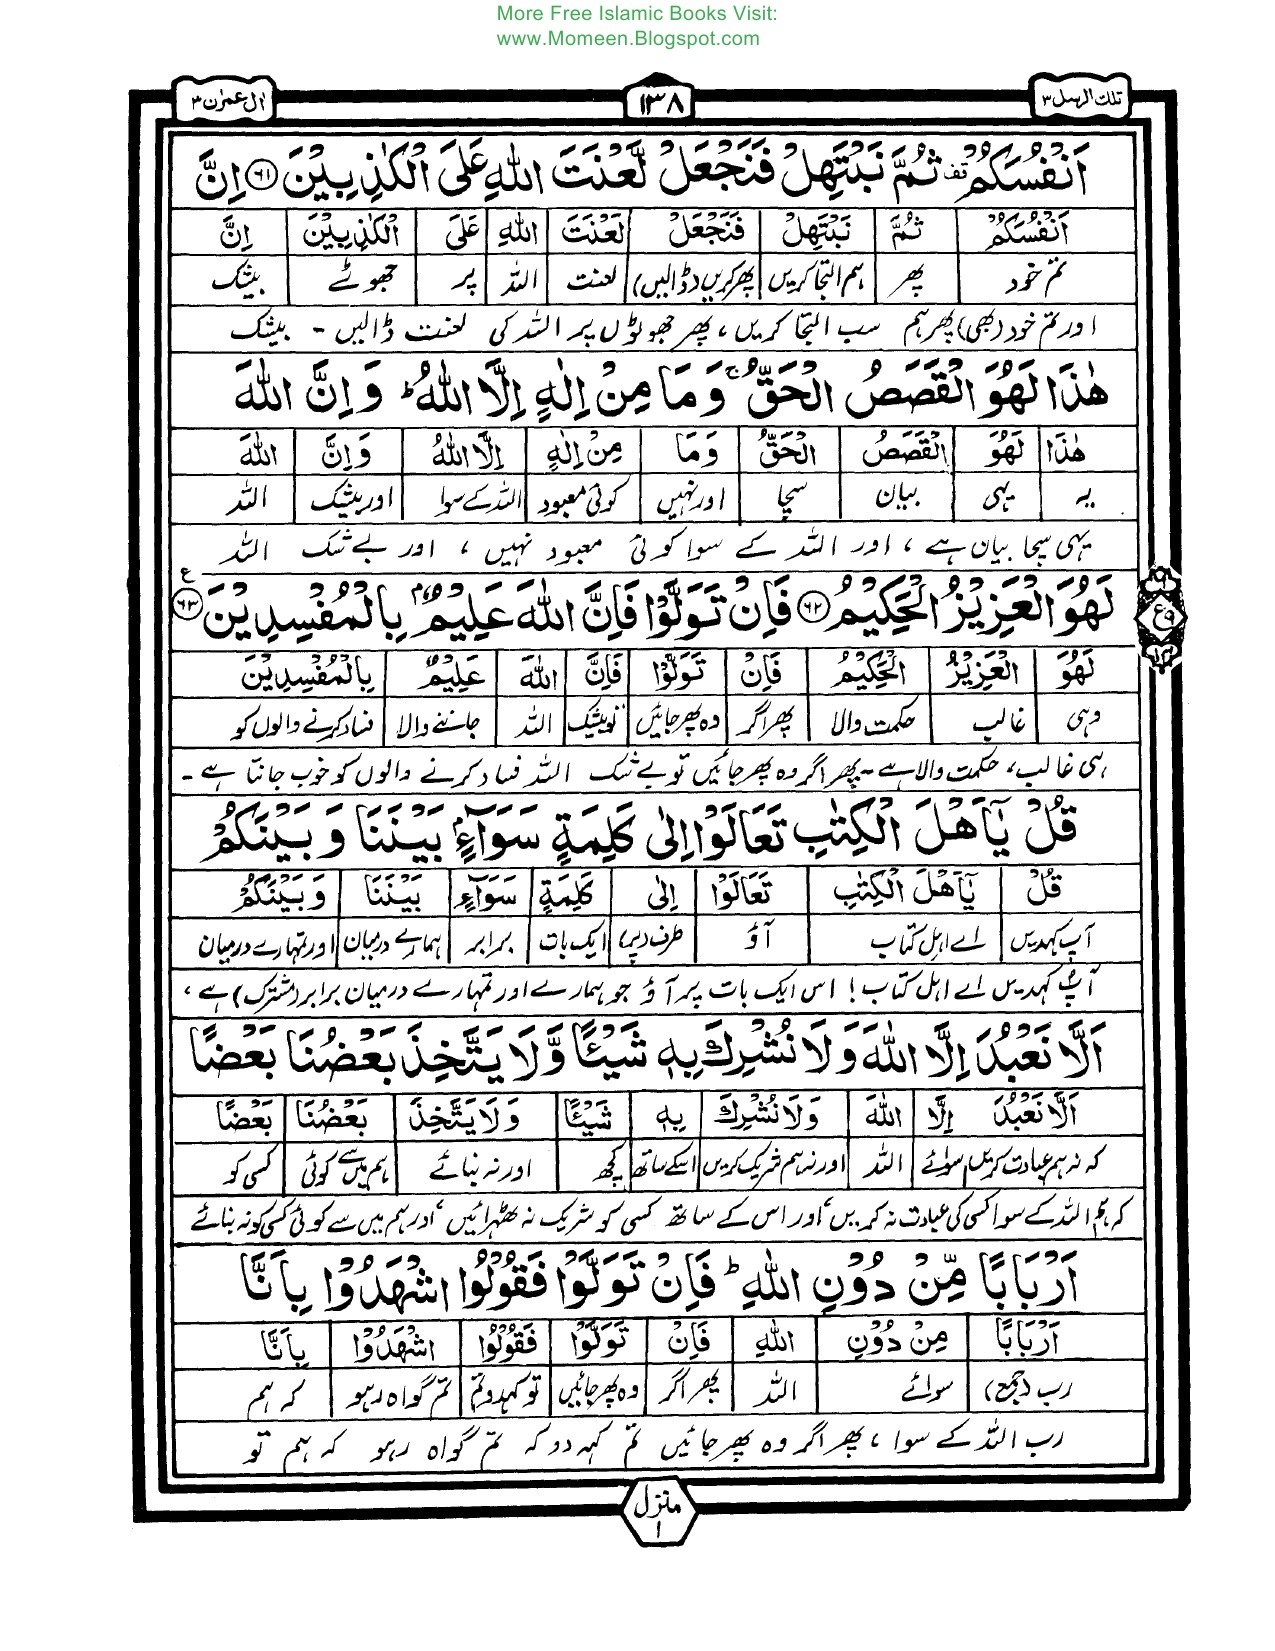 More Free Islamic Books Visit:
www.Momeen.Blogspot.com
تلك الرسل ۳ ۱۳۸ اٰل عمرٰن ۳
اَنْفُسَكُمْ قف ثُمَّ نَبْتَهِلْ فَنَجْعَلْ لَّعْنَتَ اللّٰهِ عَلَى الْكٰذِبِيْنَ ۶۱ اِنَّ
اَنْفُسَكُمْ ثُمَّ نَبْتَهِلْ فَنَجْعَلْ لَعْنَتَ اللّٰهِ عَلَى الْكٰذِبِيْنَ اِنَّ
تم خود پھر ہم التجا کریں پھر کریں (ڈالیں) لعنت اللہ پر جھوٹے بیشک
اور تم خود (بھی) پھر ہم سب التجا کریں، پھر جھوٹوں پر اللہ کی لعنت ڈالیں - بیشک
هٰذَا لَهُوَ الْقَصَصُ الْحَقُّ ۚ وَمَا مِنْ اِلٰهٍ اِلَّا اللّٰهُ ؕ وَاِنَّ اللّٰهَ
هٰذَا لَهُوَ الْقَصَصُ الْحَقُّ وَمَا مِنْ اِلٰهٍ اِلَّا اللّٰهُ وَاِنَّ اللّٰهَ
یہ یہی بیان سچا اور نہیں کوئی معبود اللہ کے سوا اور بیشک اللہ
یہی سچا بیان ہے، اور اللہ کے سوا کوئی معبود نہیں، اور بے شک اللہ
لَهُوَ الْعَزِيْزُ الْحَكِيْمُ ۶۲ فَاِنْ تَوَلَّوْا فَاِنَّ اللّٰهَ عَلِيْمٌۢ بِالْمُفْسِدِيْنَ ۶۳ ع
لَهُوَ الْعَزِيْزُ الْحَكِيْمُ فَاِنْ تَوَلَّوْا فَاِنَّ اللّٰهَ عَلِيْمٌۢ بِالْمُفْسِدِيْنَ
وہی غالب حکمت والا پھر اگر وہ پھر جائیں تو بیشک اللہ جاننے والا فساد کرنے والوں کو
ہی غالب، حکمت والا ہے - پھر اگر وہ پھر جائیں تو بے شک اللہ فساد کرنے والوں کو خوب جانتا ہے -
قُلْ يٰۤاَهْلَ الْكِتٰبِ تَعَالَوْا اِلٰى كَلِمَةٍ سَوَآءٍۢ بَيْنَنَا وَبَيْنَكُمْ
قُلْ يٰۤاَهْلَ الْكِتٰبِ تَعَالَوْا اِلٰى كَلِمَةٍ سَوَآءٍۢ بَيْنَنَا وَبَيْنَكُمْ
آپ کہدیں اے اہل کتاب آؤ طرف (پر) ایک بات برابر ہمارے درمیان اور تمہارے درمیان
آپ کہدیں اے اہل کتاب! اس ایک بات پر آؤ جو ہمارے اور تمہارے درمیان برابر (مشترک) ہے،
اَلَّا نَعْبُدَ اِلَّا اللّٰهَ وَلَا نُشْرِكَ بِهٖ شَيْـًٔا وَّلَا يَتَّخِذَ بَعْضُنَا بَعْضًا
اَلَّا نَعْبُدَ اِلَّا اللّٰهَ وَلَا نُشْرِكَ بِهٖ شَيْـًٔا وَلَا يَتَّخِذَ بَعْضُنَا بَعْضًا
کہ نہ ہم عبادت کریں سوائے اللہ اور نہ ہم شریک کریں اسکے ساتھ کچھ اور نہ بنائے ہم میں سے کوئی کسی کو
کہ ہم اللہ کے سوا کسی کی عبادت نہ کریں، اور اس کے ساتھ کسی کو شریک نہ ٹھہرائیں، اور ہم میں سے کوئی کسی کو نہ بنائے
اَرْبَابًا مِّنْ دُوْنِ اللّٰهِ ؕ فَاِنْ تَوَلَّوْا فَقُوْلُوا اشْهَدُوْا بِاَنَّا
اَرْبَابًا مِنْ دُوْنِ اللّٰهِ فَاِنْ تَوَلَّوْا فَقُوْلُوا اشْهَدُوْا بِاَنَّا
رب (جمع) سوائے اللہ پھر اگر وہ پھر جائیں تو کہدو تم تم گواہ رہو کہ ہم
رب اللہ کے سوا، پھر اگر وہ پھر جائیں تم کہہ دو کہ تم گواہ رہو کہ ہم تو
منزل ۱